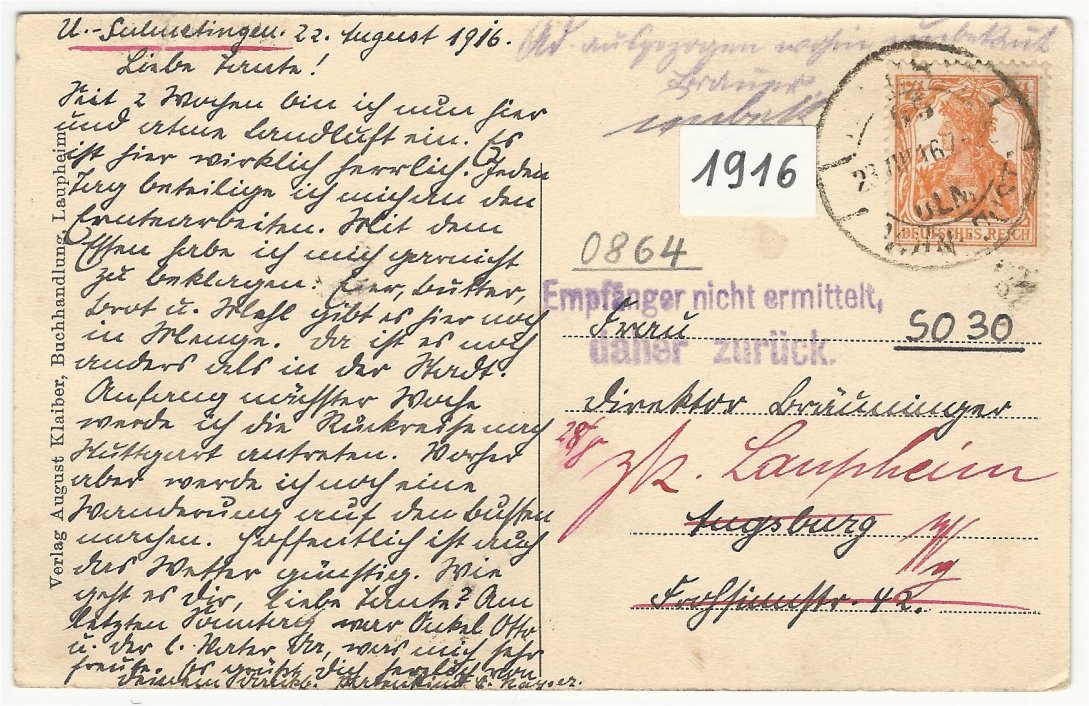 U.-Sulmetingen. 22. August 1916.
Liebe Tante!
Seit 2 Wochen bin ich nun hier
und atme Landluft ein. Es
ist hier wirklich herrlich. Jeden
Tag beteilige ich mich an den
Erntearbeiten. Mit dem
Essen habe ich mich gar nicht
zu beklagen. Eier, Butter,
Brot u. Mehl gibt es hier noch
in Menge. Da ist es noch
anders als in der Stadt.
Anfang nächster Woche
werde ich die Rückreise nach
Stuttgart antreten. Vorher
aber werde ich noch eine
Wanderung auf den Bussen
machen. Hoffentlich ist auch
das Wetter günstig. Wie
geht es dir, liebe Tante? Am
letzten Sonntag war Onkel Otto
u. der l. Vater da, was mich sehr
freute. Es grüßt dich herzlich von
Deinem dankb.
Verlag August Klaiber, Buchhandlung, Laupheim
Ad. ausgezogen wohin unbekannt
unbek
1916
ULM
DEUTSCHES REICH
0864
Empfänger nicht ermittelt,
daher zurück.
SO 30
Frau
Direktor Bräuninger
28/8
zk. Laupheim
Augsburg
Wg
Frohsinnstr. 42.